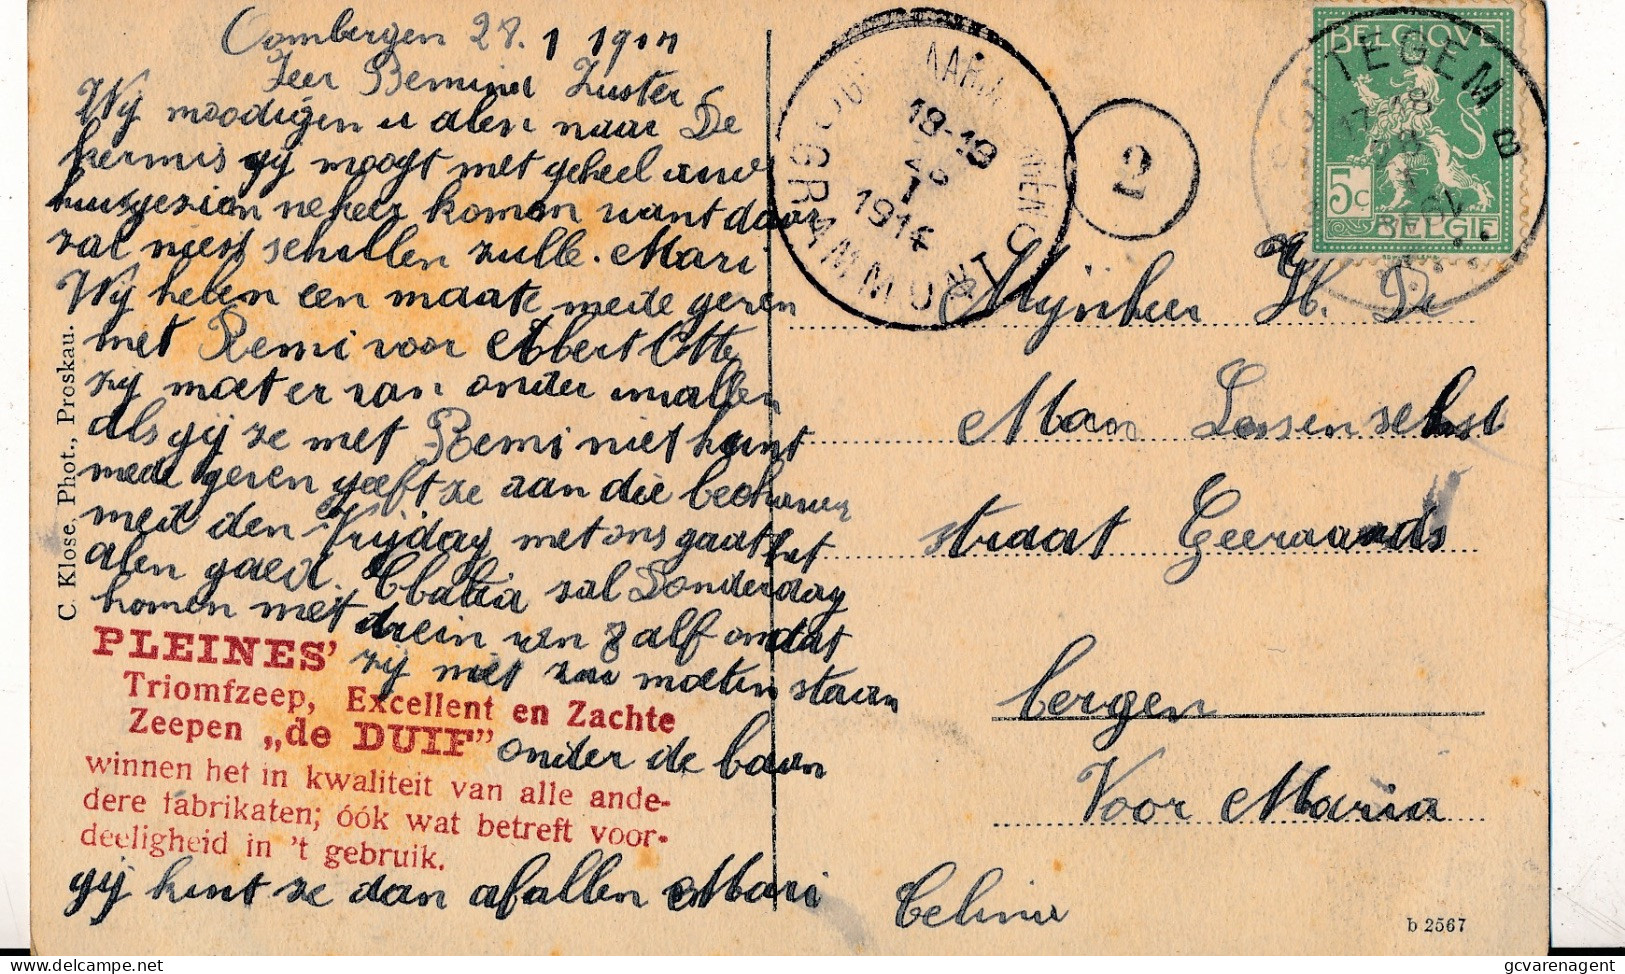 Oombergen 28. 1 1914
Zeer Bemind Zuster
Wij moodigen u alen naar De
kermis gij moogt met geheel uw
huisgezion ne keer komen want daar
zal niest schillen zulle. Mari
Wij helen een maate mede geren
met Remi voor Albert Otte
zij moet er van onder mallen
als gij ze met Remi niet kunt
mede geren geeft ze aan die
med den Vrijdag met ons gaat het
alen goed. Clatia zal Donderdag
komen met drein van 8 alf omdat
zij niet zou moeten staan
onder de baan
gij kunt ze dan afallen Mari
PLEINES'
Triomfzeep, Excellent en Zachte
Zeepen „de DUIF”
winnen het in kwaliteit van alle ande-
dere fabrikaten; óók wat betreft voor-
deeligheid in 't gebruik.
C. Klose, Phot., Proskau.
18-19
1
1914
GRAMMONT
2
BELGIQUE
5c
BELGIË
TEGEM
B
Mijnheer H. De
Man Lessensche
straat Geeraards
bergen
Voor Maria
Celine
b 2567
gcvarenagent